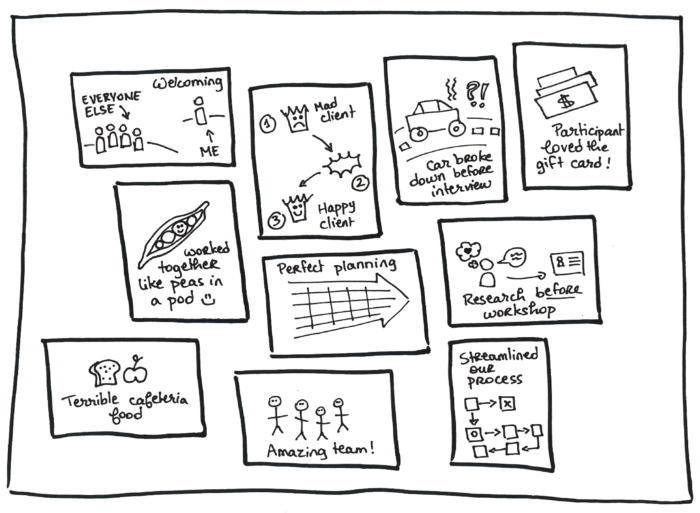 Welcoming
EVERYONE
ELSE
ME
1
Mad
client
2
3
Happy
client
?!
Car broke
down before
interview
$
Participant
loved the
gift card!
worked
together
like peas in
a pod
Perfect planning
Research before
workshop
Terrible cafeteria
food
Amazing team!
Streamlined
our
process